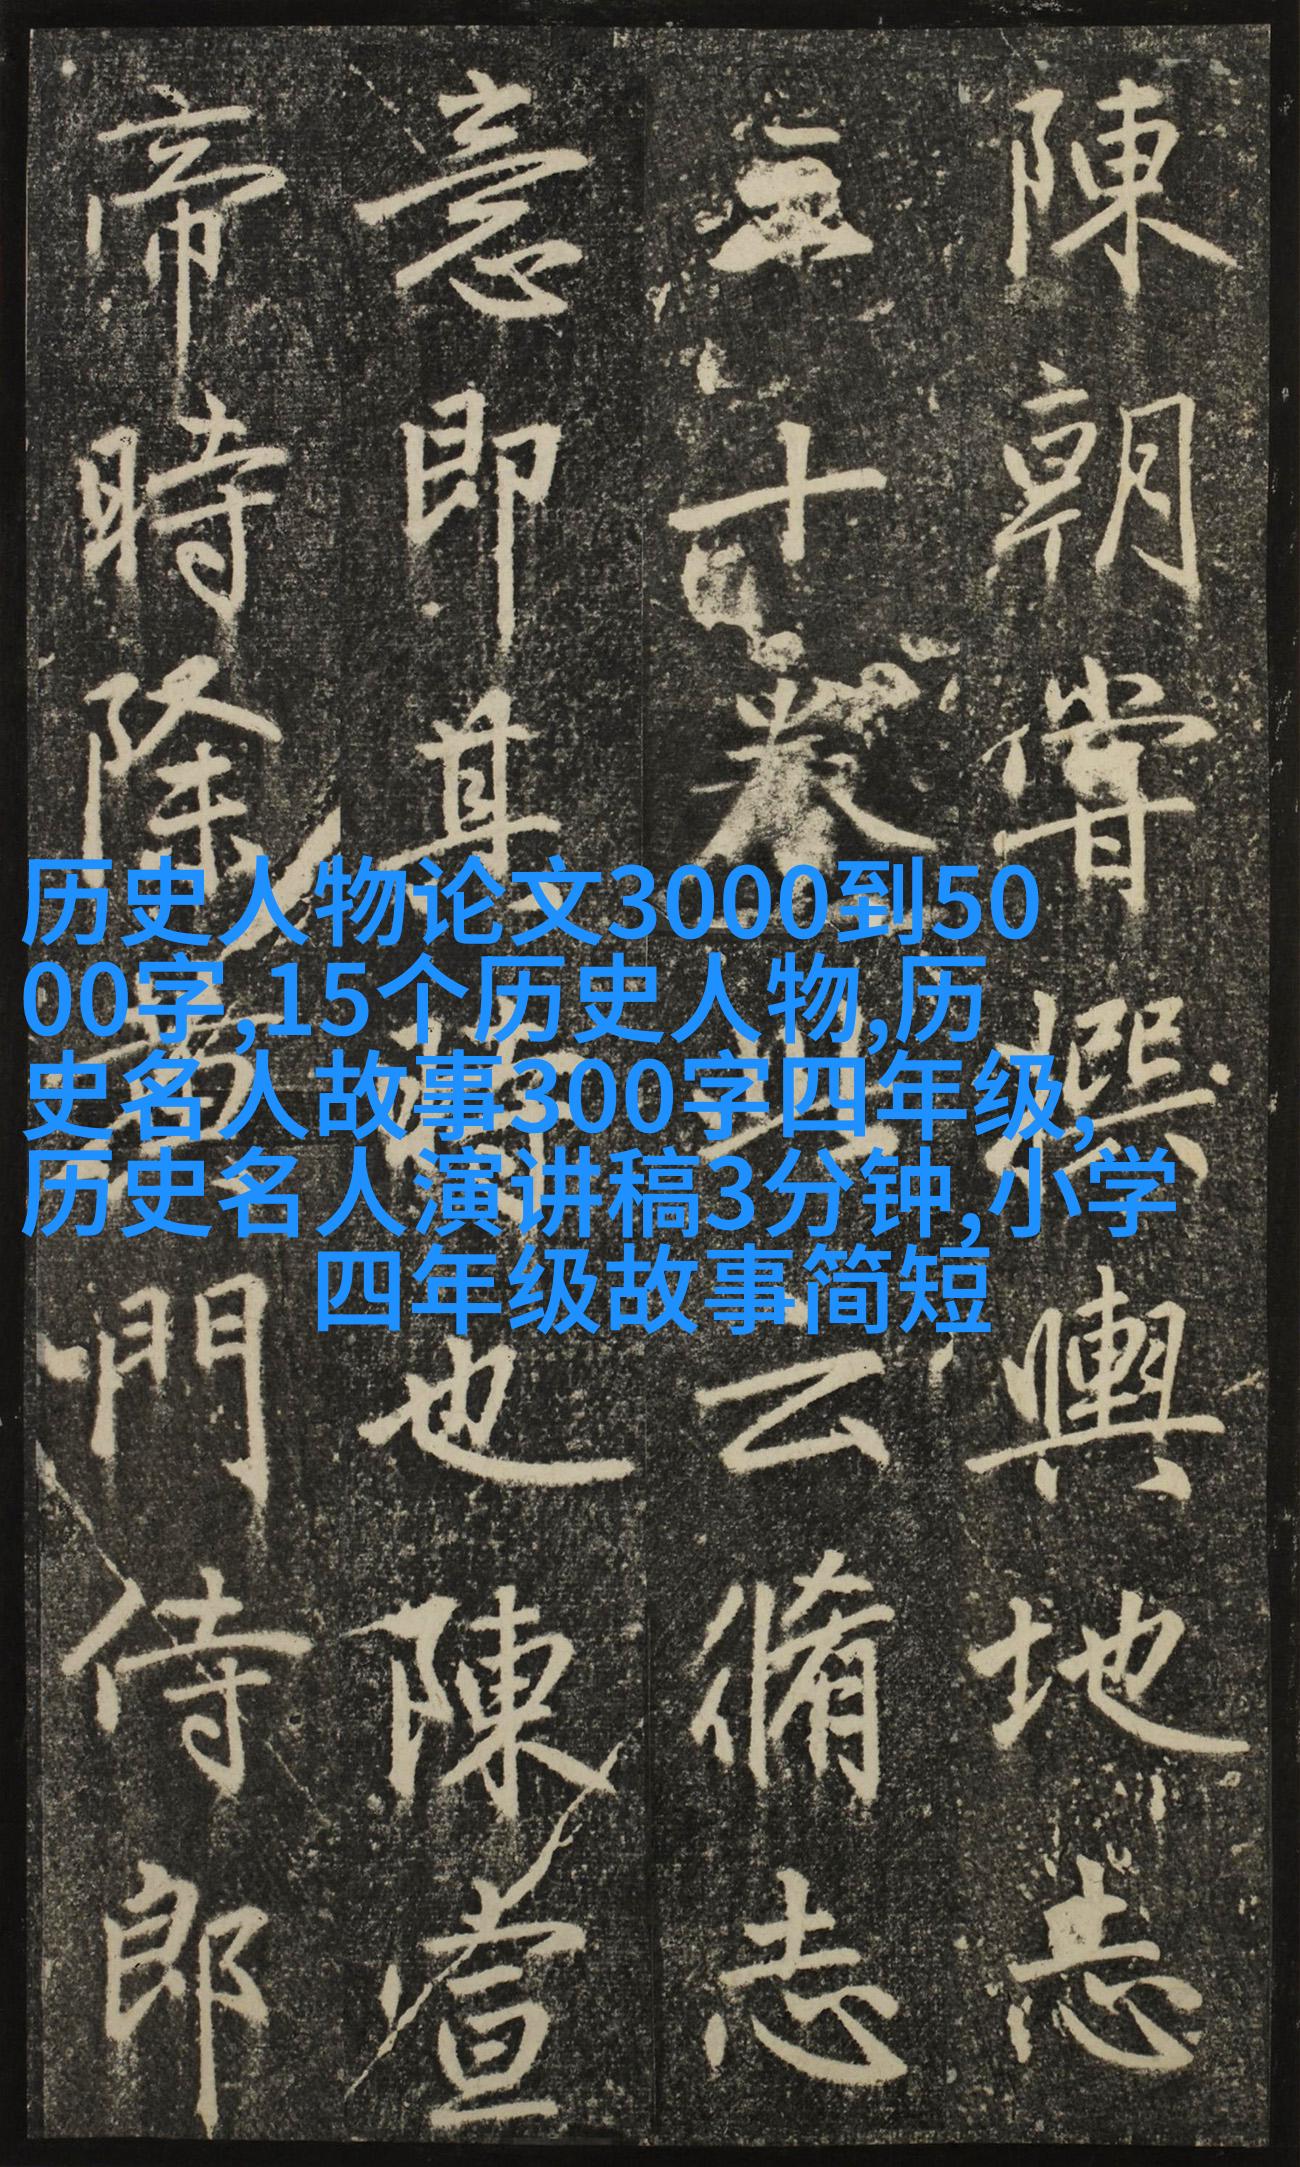 陳朝嘗撰輿地志
三十卷此云脩志
意即其也陳宣
帝時除黃門侍郎
历史人物论文3000到50
00字,15个历史人物,历
史名人故事300字四年级,
历史名人演讲稿3分钟,小学
四年级故事简短